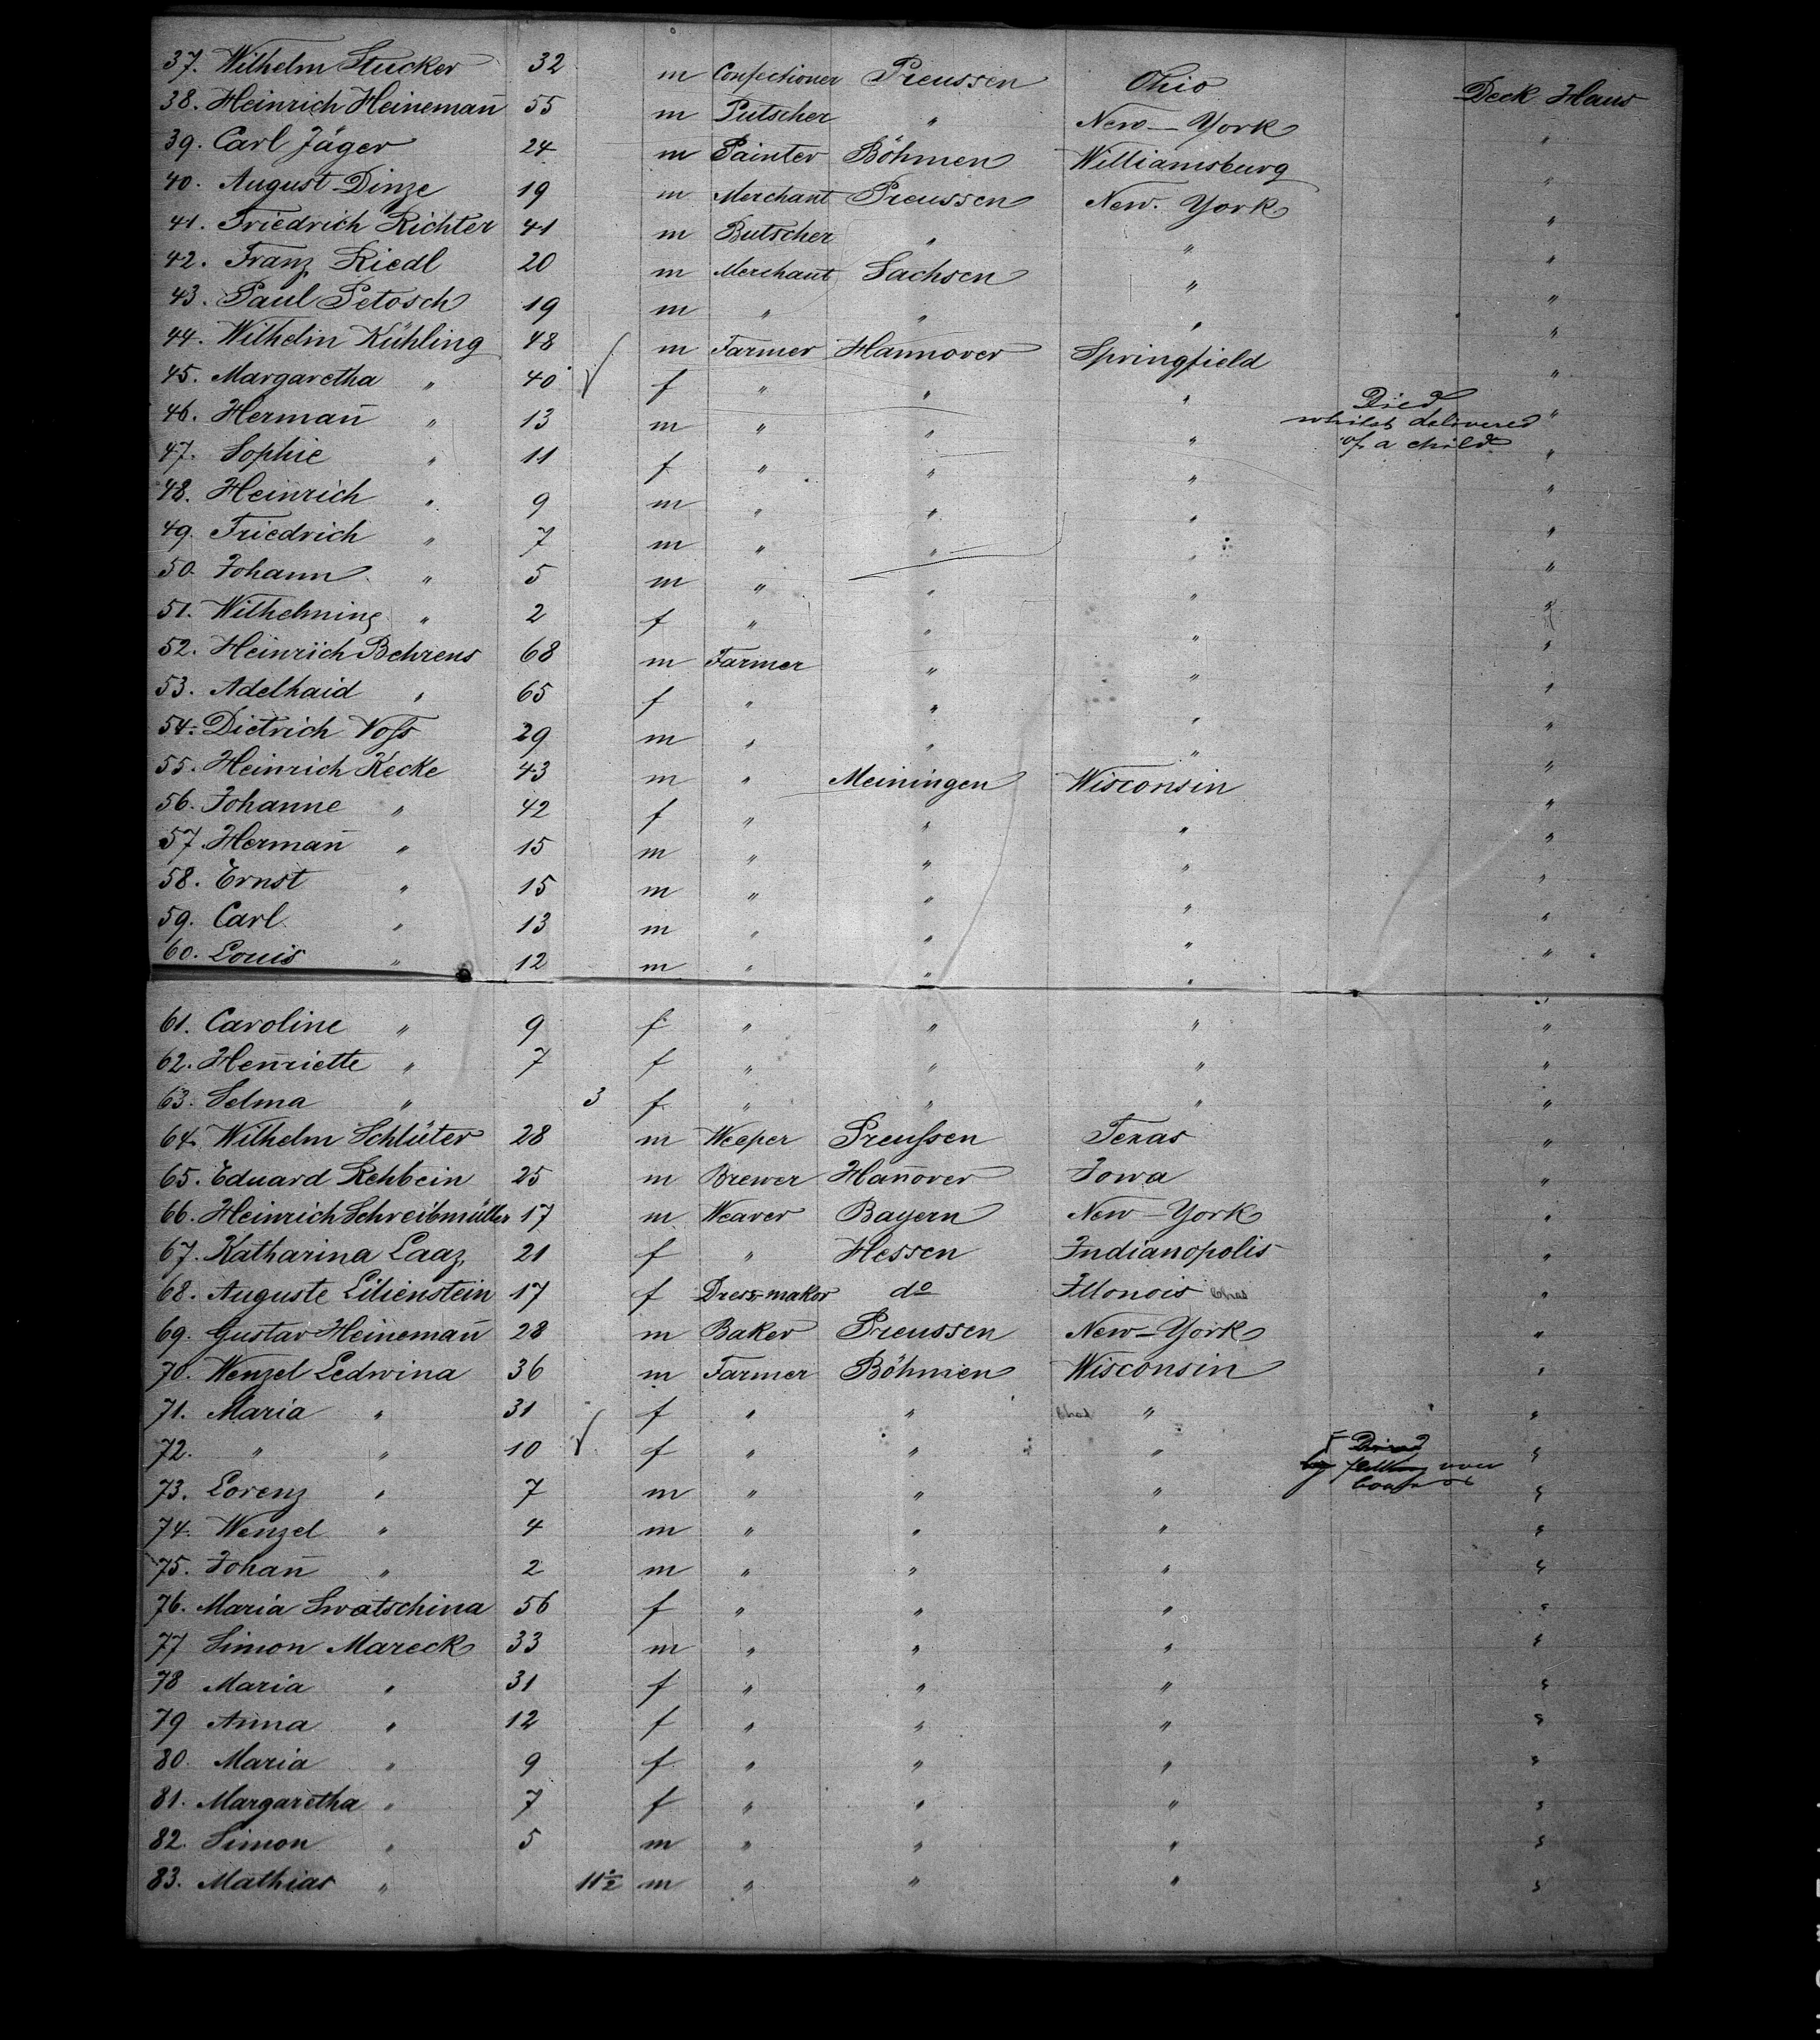 37. Wilhelm Stucker 32 m Confectioner Preussen Ohio Deck Haus
38. Heinrich Heineman̄ 55 m Putscher " New-York "
39. Carl Jäger 24 m Painter Böhmen Williamsburg "
40. August Dinze 19 m Merchant Preussen New. York "
41. Friedrich Richter 41 m Butscher " " "
42. Franz Riedl 20 m Merchant Sachsen " "
43. Paul Petosch 19 m " " " "
44. Wilhelm Kühling 48 m Farmer Hannover Springfield "
45. Margaretha " 40 √ f " " " Died whilst delivered of a child "
46. Herman̄ " 13 m " " " "
47. Sophie " 11 f " " " "
48. Heinrich " 9 m " " " "
49. Friedrich " 7 m " " " "
50. Johann " 5 m " " " "
51. Wilhelmine " 2 f " " " "
52. Heinrich Behrens 68 m Farmer " " "
53. Adelhaid " 65 f " " " "
54. Dietrich Voſs 29 m " " " "
55. Heinrich Kecke 43 m " Meiningen Wisconsin "
56. Johanne " 42 f " " " "
57. Herman̄ " 15 m " " " "
58. Ernst " 15 m " " " "
59. Carl " 13 m " " " "
60. Louis " 12 m " " " "
61. Caroline " 9 f " " " "
62. Hen̄riette " 7 f " " " "
63. Selma " 3 f " " " "
64. Wilhelm Schlüter 28 m Weeper Preuſsen Texas "
65. Eduard Rehbein 25 m Brewer Han̄over Iowa "
66. Heinrich Schreibmüller 17 m Weaver Bayern New-York "
67. Katharina Laaz 21 f " Hessen Indianopolis "
68. Auguste Lilienstein 17 f Dress-makor do Illonois "
69. Gustav Heineman̄ 28 m Baker Preussen New-York "
70. Wenzel Ledwina 36 m Farmer Böhmen Wisconsin "
71. Maria " 31 f " " " "
72. " " 10 √ f " " " over board "
73. Lorenz " 7 m " " " "
74. Wenzel " 4 m " " " "
75. Johan̄ " 2 m " " " "
76. Maria Swatschina 56 f " " " "
77 Simon Mareck 33 m " " " "
78 Maria " 31 f " " " "
79 Anna " 12 f " " " "
80. Maria " 9 f " " " "
81. Margaretha " 7 f " " " "
82. Simon " 5 m " " " "
83. Mathias " 11½ m " " " "